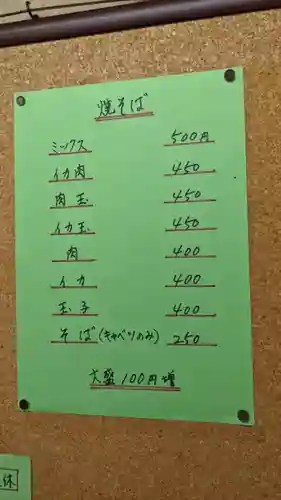 焼そば
ミックス 500円
イカ肉 450
肉玉 450
イカ玉 450
肉 400
イカ 400
玉子 400
そば(キャベツのみ) 250
大盛100円増
休